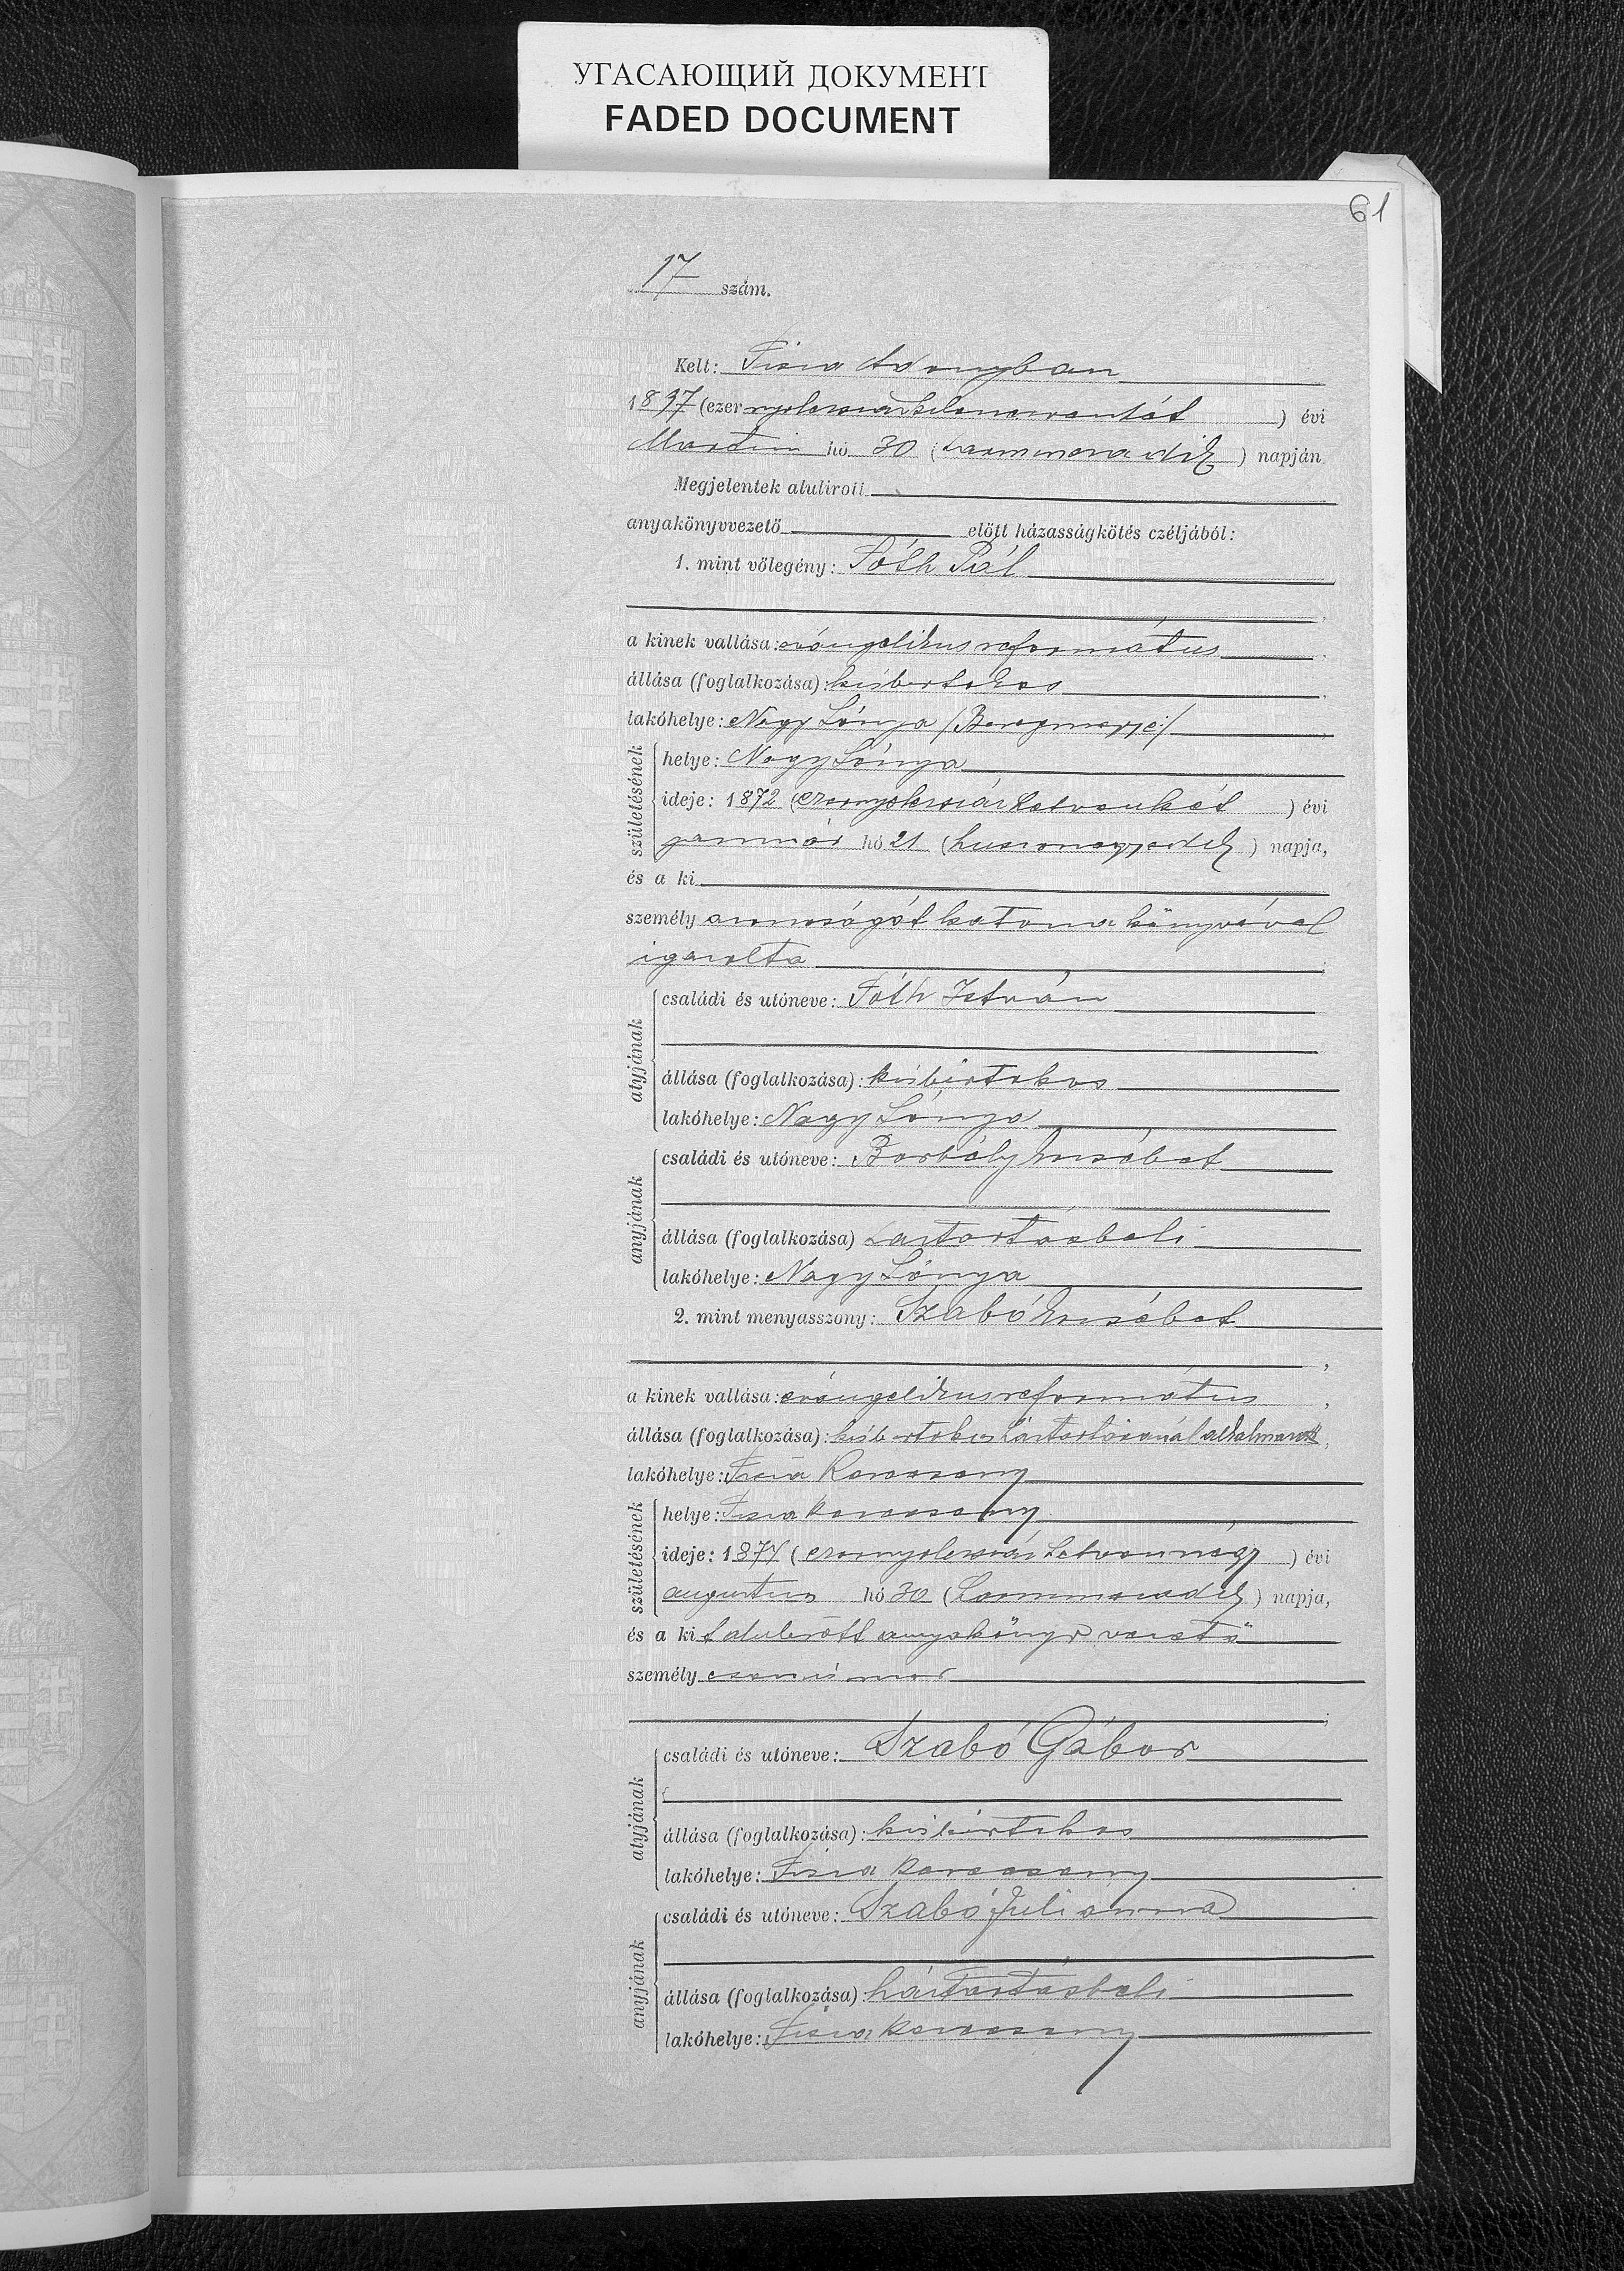 УГАСАЮЩИЙ ДОКУМЕНТ
FADED DOCUMENT
61
17 szám.
Kelt: Tisza Adonyban
1897 (ezer nyolczszázkilenczvenhét) évi
Martius hó 30 (harminczadik) napján
Megjelentek alulirott
anyakönyvvezető előtt házasságkötés czéljából:
1. mint vőlegény: Tóth Pál
a kinek vallása: evángelikus református,
állása (foglalkozása): kisbirtokos,
lakóhelye: Nagy Lónya /Beregmegye/,
születésének
helye: Nagy Lónya
ideje: 1872 (ezernyolczszázhetvenkét) évi
január hó 21 (huszonegyedik) napja,
és a ki
személy azonoságát katona könyvével
igazolta;
atyjának
családi és utóneve: Tóth István
állása (foglalkozása): kisbirtokos
lakóhelye: Nagy Lónya
anyjának
családi és utóneve: Borbély Erzsébet
állása (foglalkozása) háztartásbeli
lakóhelye: Nagy Lónya
2. mint menyasszony: Szabó Erzsébet,
a kinek vallása: evángelikus református,
állása (foglalkozása): kisbirtokos háztartásánál alkalmazott,
lakóhelye: Tisza Kerecseny
születésének
helye: Tisza Kerecseny
ideje: 1874 (ezernyolczszázhetvennégy) évi
augusztus hó 30 (harminczadik) napja,
és a ki t alulirott anyakönyvvezető
személyesen ismer;
atyjának
családi és utóneve: Szabó Gábor
állása (foglalkozása): kisbirtokos
lakóhelye: Tisza Kerecseny
anyjának
családi és utóneve: Szabó Juliánna
állása (foglalkozása) háztartásbeli
lakóhelye: Tisza Kerecseny